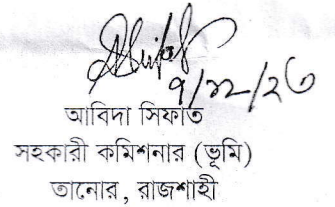 ৭/১২/২৩
আবিদা সিফাত
সহকারী কমিশনার (ভূমি)
তানোর, রাজশাহী